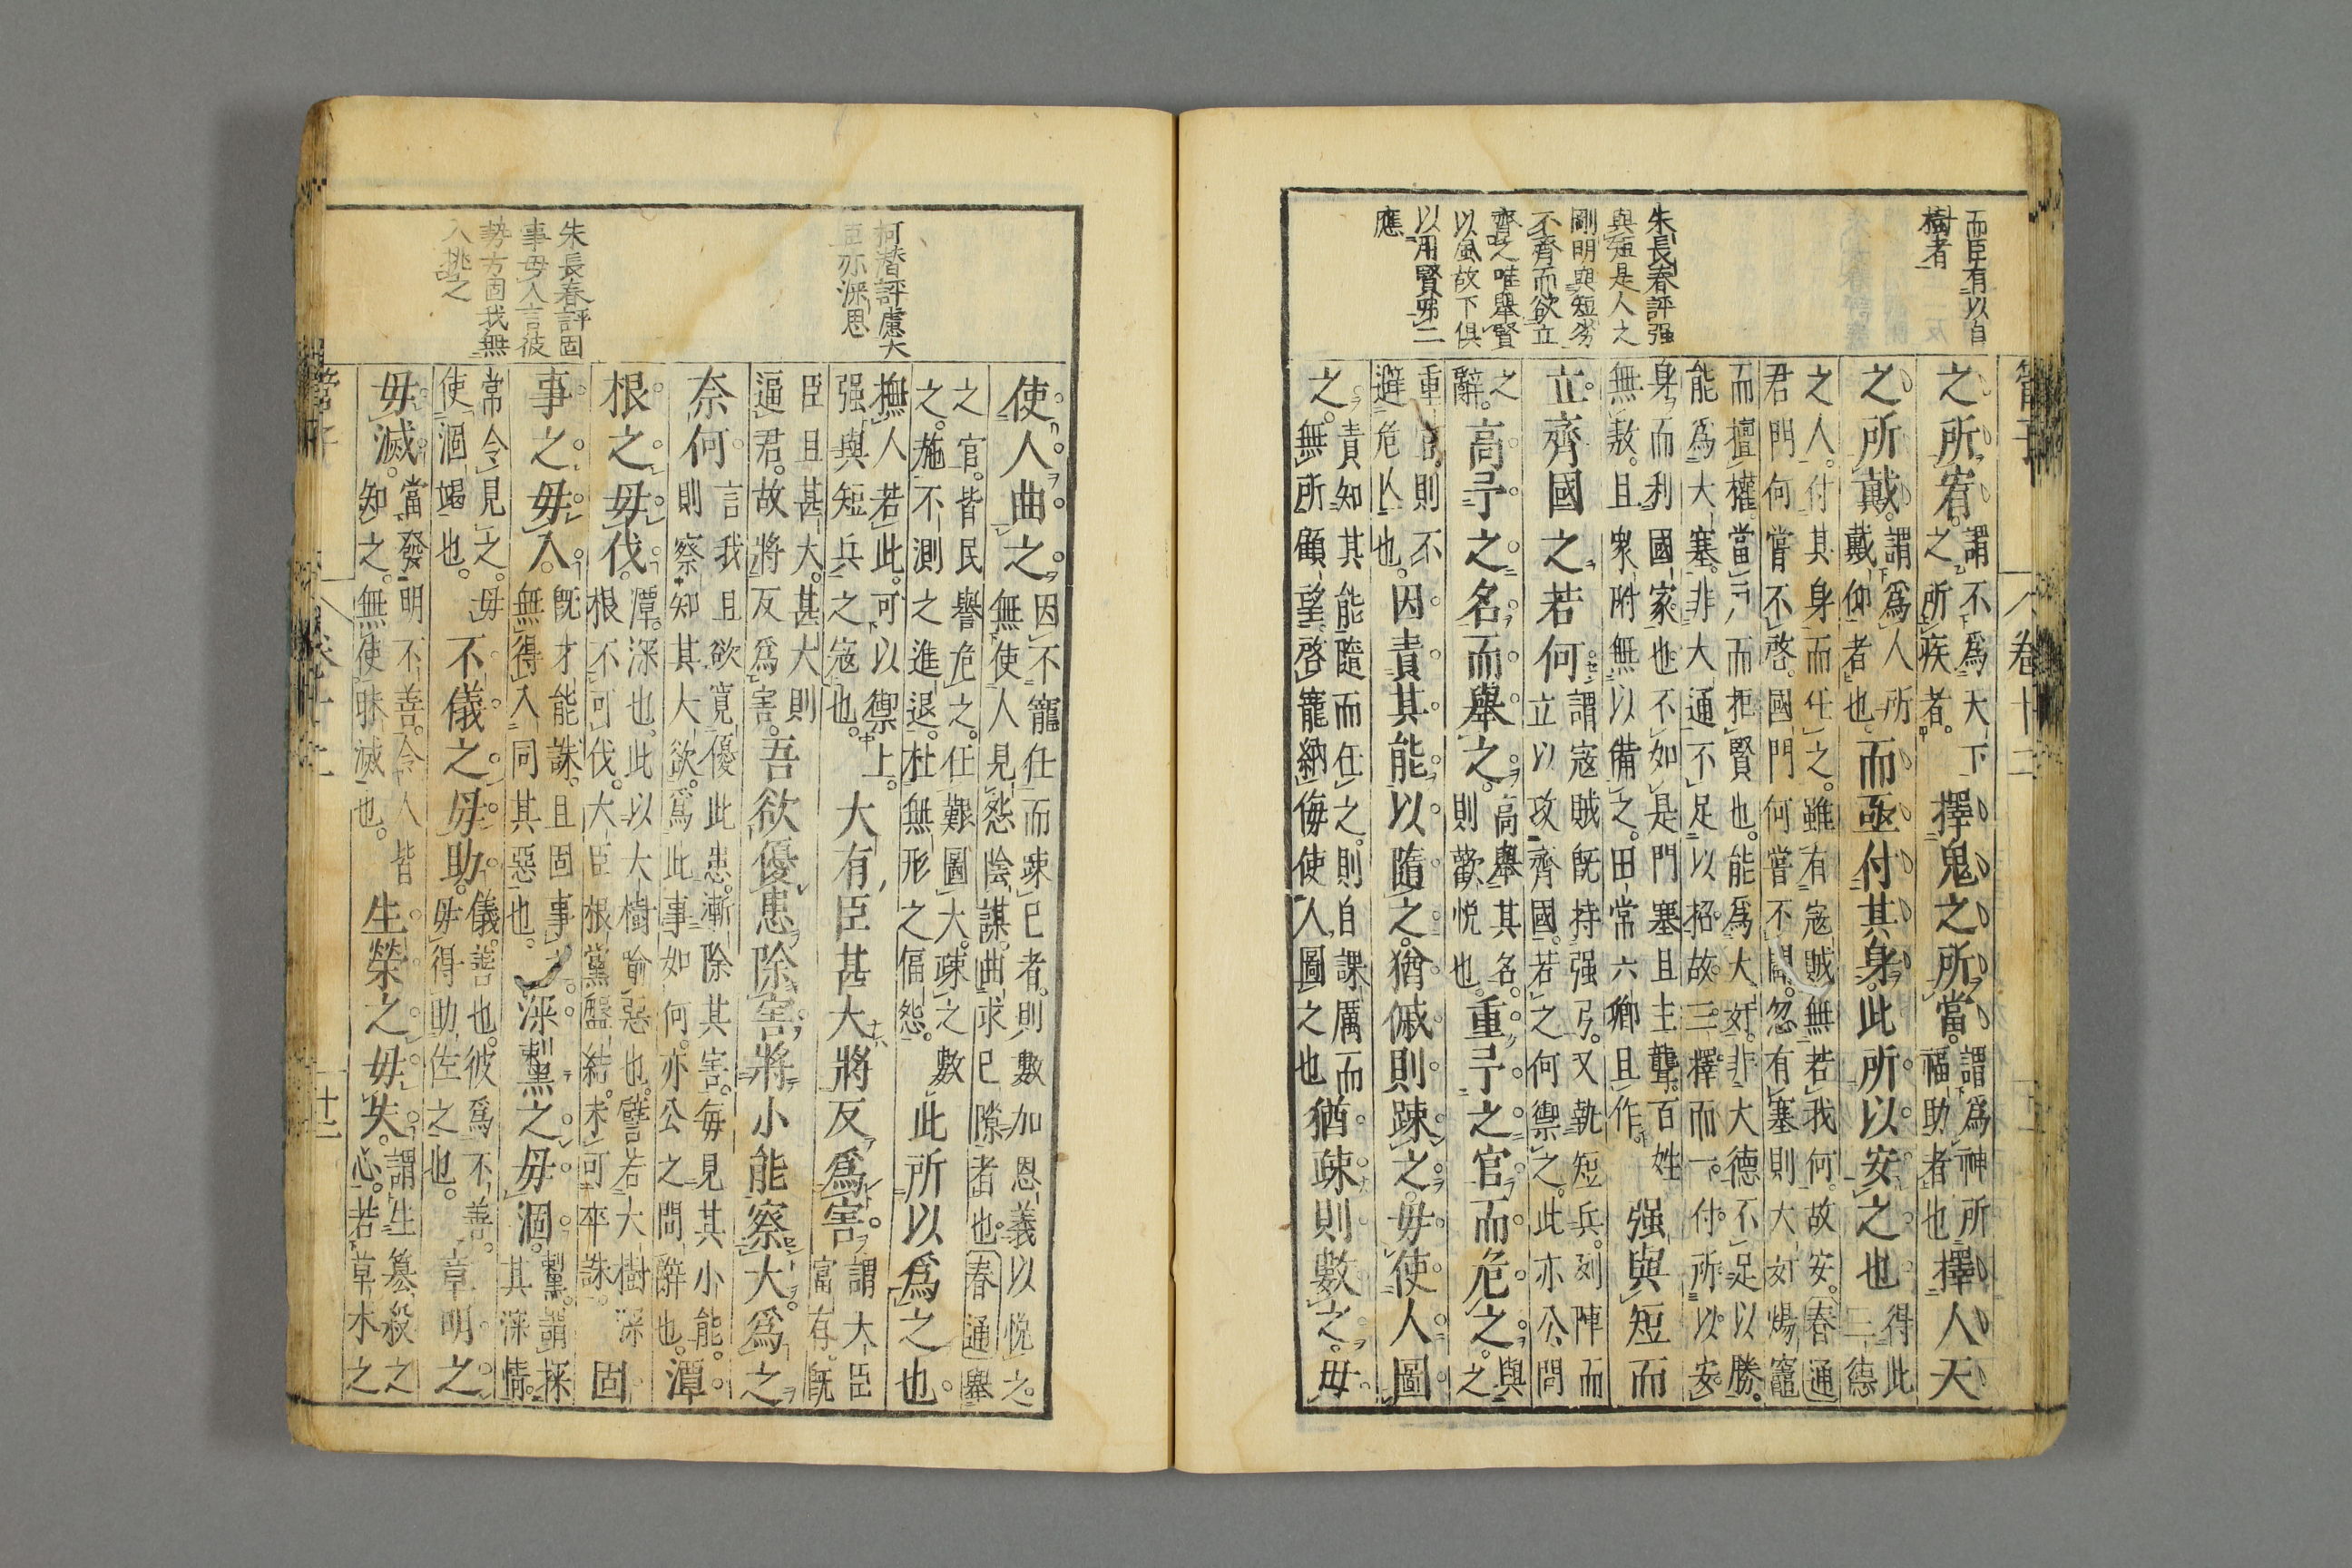 管子
卷十二
而臣有以自
樹者
朱長春評强
與短是人之
剛明與短劣
不齊而欲立
齊之唯舉賢
以風故下俱
以用賢弟二
應
之所宥。謂不爲大下
之所疾者。擇鬼之所當。謂爲神所
福助者也擇人天
之所戴。謂爲人所
戴仰者也而亟付其身。此所以安之也得此
二德
之人。付其身而任之。雖有寇賊無若我何。故安。春通
君門何嘗不啓。國門何嘗不闢。忽有塞則大奸煬竈
而擅權。當而拒賢也。能爲大奸。非大德不足以勝。
能爲大塞。非大通不足以招。故三擇而一。付所以安
身而利國家也。不如是門塞且主聾。百姓
無敖。且衆附無以備之。田常六卿且作。强與短而
立齊國之若何。謂寇賊既持强弓。又執短兵。列陣而
立以攻齊國。若之何禦之。此亦公問
之
辭。高予之名而舉之。高舉其名。
則歡悅也。重予之官而危之。與
之
重官。則不
避危亾也。因責其能以隨之。猶傶則疎之。毋使人圖
之。責知其能隨而任之。則自課厲而
無所顧望啓寵納侮使人圖之也猶疎則數之。毋
柯潛評慮大
臣亦深思
朱長春評固
事毋入言彼
勢方固我無
入挑之
使人曲之。因不寵任而疎已者。則數加恩義以悅之。
無使人見怨陰謀。曲求已隙者也。春通舉
之官。皆民譽危之。任艱圖大。疎之數
之。施不測之進退。杜無形之偪怨。此所以爲之也。
撫人若此。可以禦上。
强與短兵之寇也。大有臣甚大將反爲害。謂大臣
富有。既
臣且甚大。甚大則
逼君。故將反爲害。吾欲優患除害。將小能察大。爲之
奈何言我且欲寬優此患。漸除其害。每見其小能。
則察知其大。欲爲此事如何。亦公之問辭也。潭
根之毋伐。潭。深也。此以大樹喻惡也。譬若大樹深
根不可伐。大臣根黨盤結。未可卒誅。固
事之毋入。既才能誅。且固事
無得入同其惡也。深䵩之毋涸。䵩。謂探
其深情。
常令見之。毋
使涸竭也。不儀之毋助。儀。善也。彼爲不善。
毋得助佐之也。章明之
毋滅。當發明不善。令人皆
知之。無使昧滅也。生榮之毋失。謂生簒殺之
心。若草木之
管子
卷十二
十二